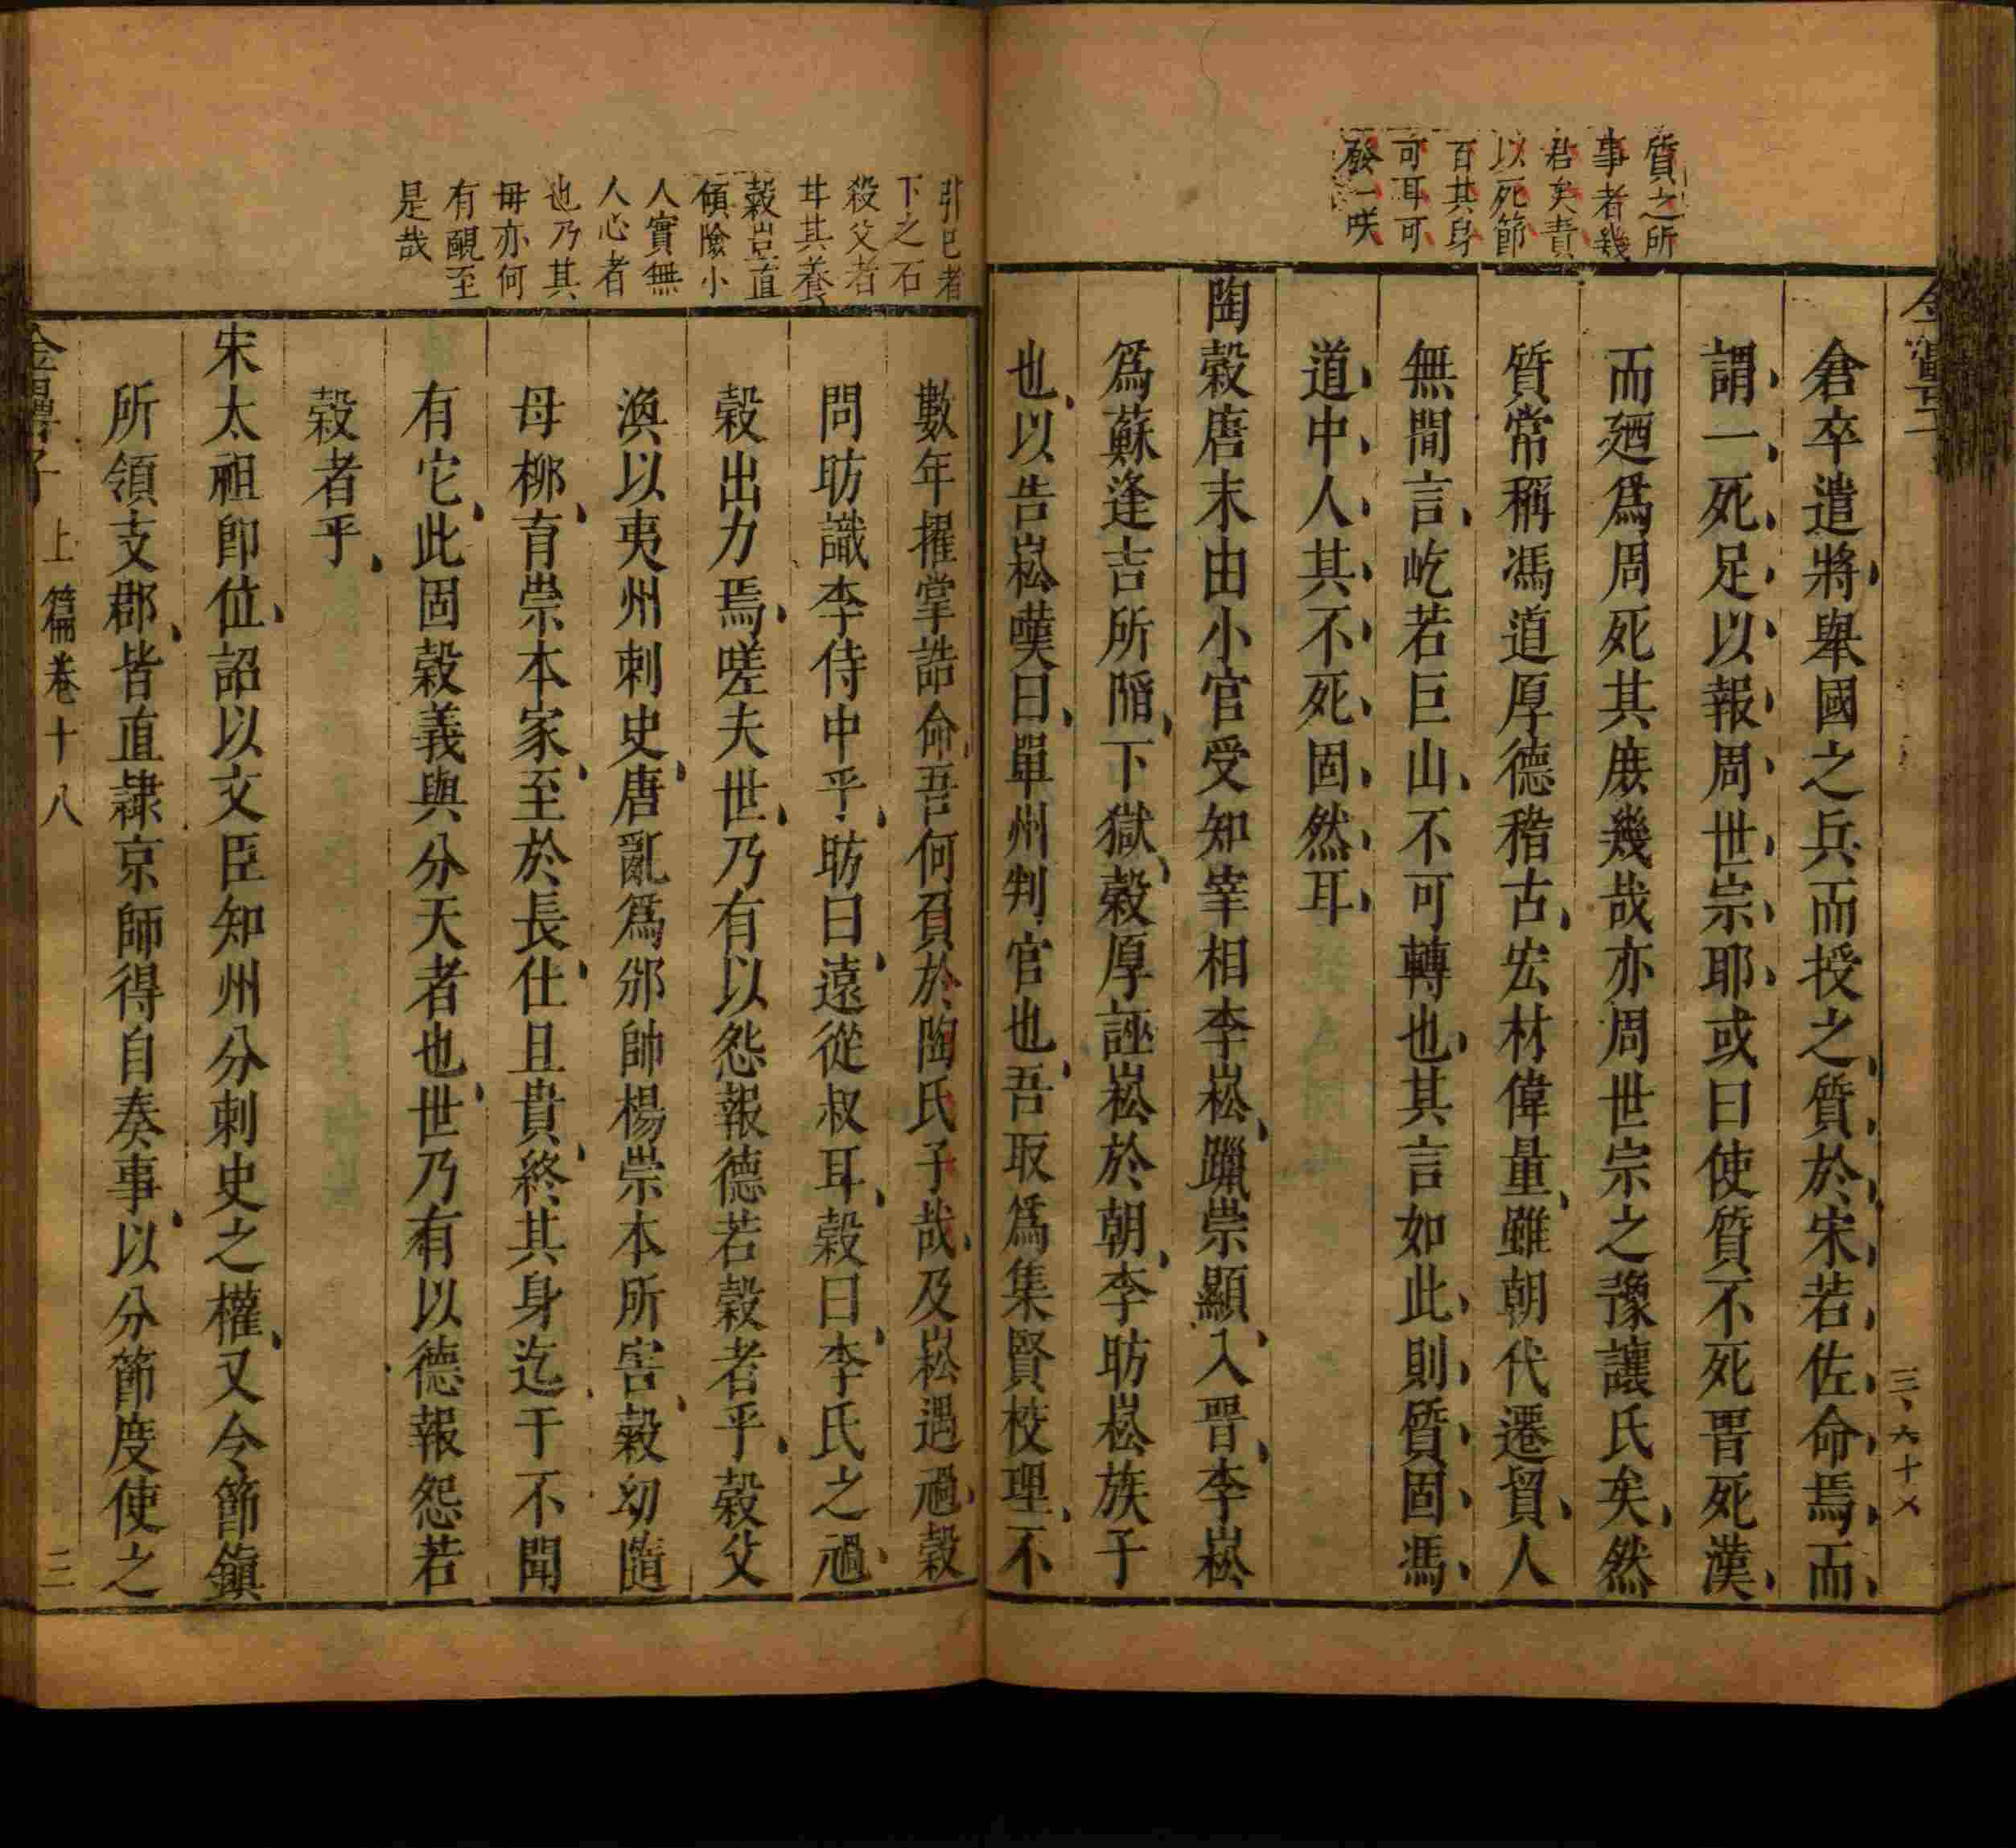 質之所
事者幾
君矣責
以死節
百其身
可耳可
發一咲
倉卒遣將舉國之兵而授之質於宋若佐命焉而
謂一死足以報周世宗耶或曰使質不死胃死漢
而廼爲周死其庻幾哉亦周世宗之豫讓氏矣然
質常稱馮道厚德稽古宏材偉量雖朝代遷貿人
無間言屹若巨山不可轉也其言如此則質固馮
道中人其不死固然耳
陶穀唐末由小官受知宰相李崧躐崇顯入晋李崧
爲蘇逢吉所䧟下獄穀厚誣崧於朝李昉崧族子
也以告崧嘆曰單州判官也吾取爲集賢校理不
引己者
下之石
殺父者
甘其養
穀豈直
傾險小
人實無
人心者
也乃其
母亦何
有靦至
是哉
數年擢掌誥命吾何負於陶氏子哉及崧遇禍穀
問昉識李侍中乎昉曰遠從叔耳穀曰李氏之禍
穀出力焉嗟夫世乃有以怨報德若穀者乎穀父
渙以夷州刺史唐亂爲邠帥楊崇本所害穀幼隨
母柳育崇本家至於長仕且貴終其身迄于不聞
有它此固穀義與分天者也世乃有以德報怨若
穀者乎
宋太祖卽位詔以文臣知州分刺史之權又令節鎮
所領支郡皆直隷京師得自奏事以分節度使之
上篇卷十八
三